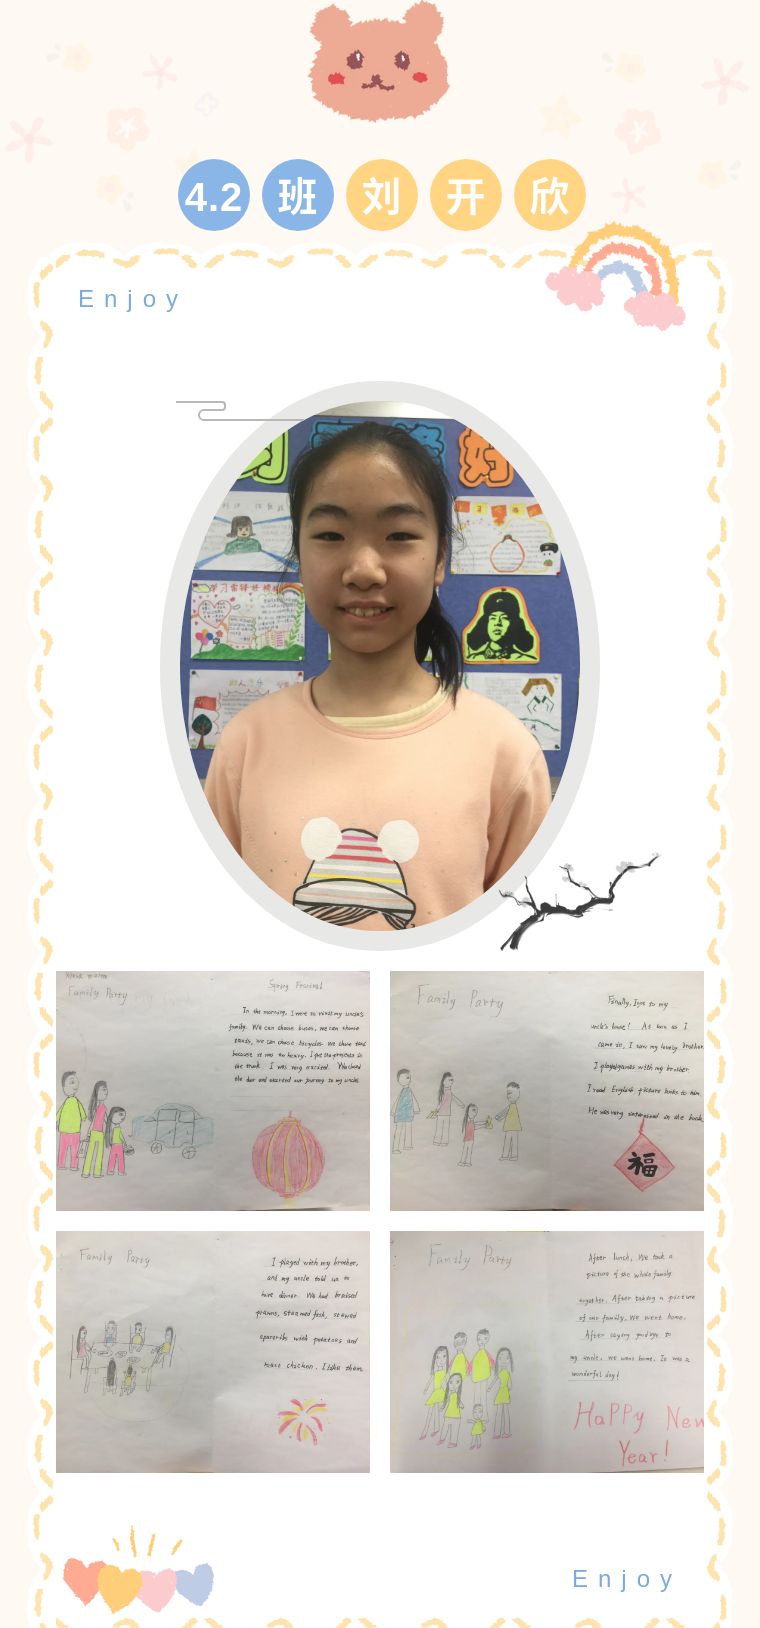 4.2 班 刘 开 欣
Enjoy
学习雷锋好榜样
Family Party
Spring Festival
In the morning, I went to visit my uncle's
family. We can chose buses, we can chose
taxis, we can chose bicycles. We chose taxi
because it was too heavy. I put the presents in
the trunk. I was very excited. We closed
the door and started our journey to my uncle.
Family Party
Finally, I got to my
uncle's house! As soon as I
came in, I saw my lovely brother.
I played games with my brother.
I read English picture books to him.
He was very interested in the book.
福
Family Party
I played with my brother,
and my uncle told us to
have dinner. We had braised
prawns, steamed fish, stewed
spareribs with potatoes and
roast chicken. I like them.
Family Party
After lunch, We took a
picture of the whole family
together. After taking a picture
of our family, We went home.
After saying goodbye to
my uncle, we went home. It was a
wonderful day!
HaPPy New
Year!
Enjoy